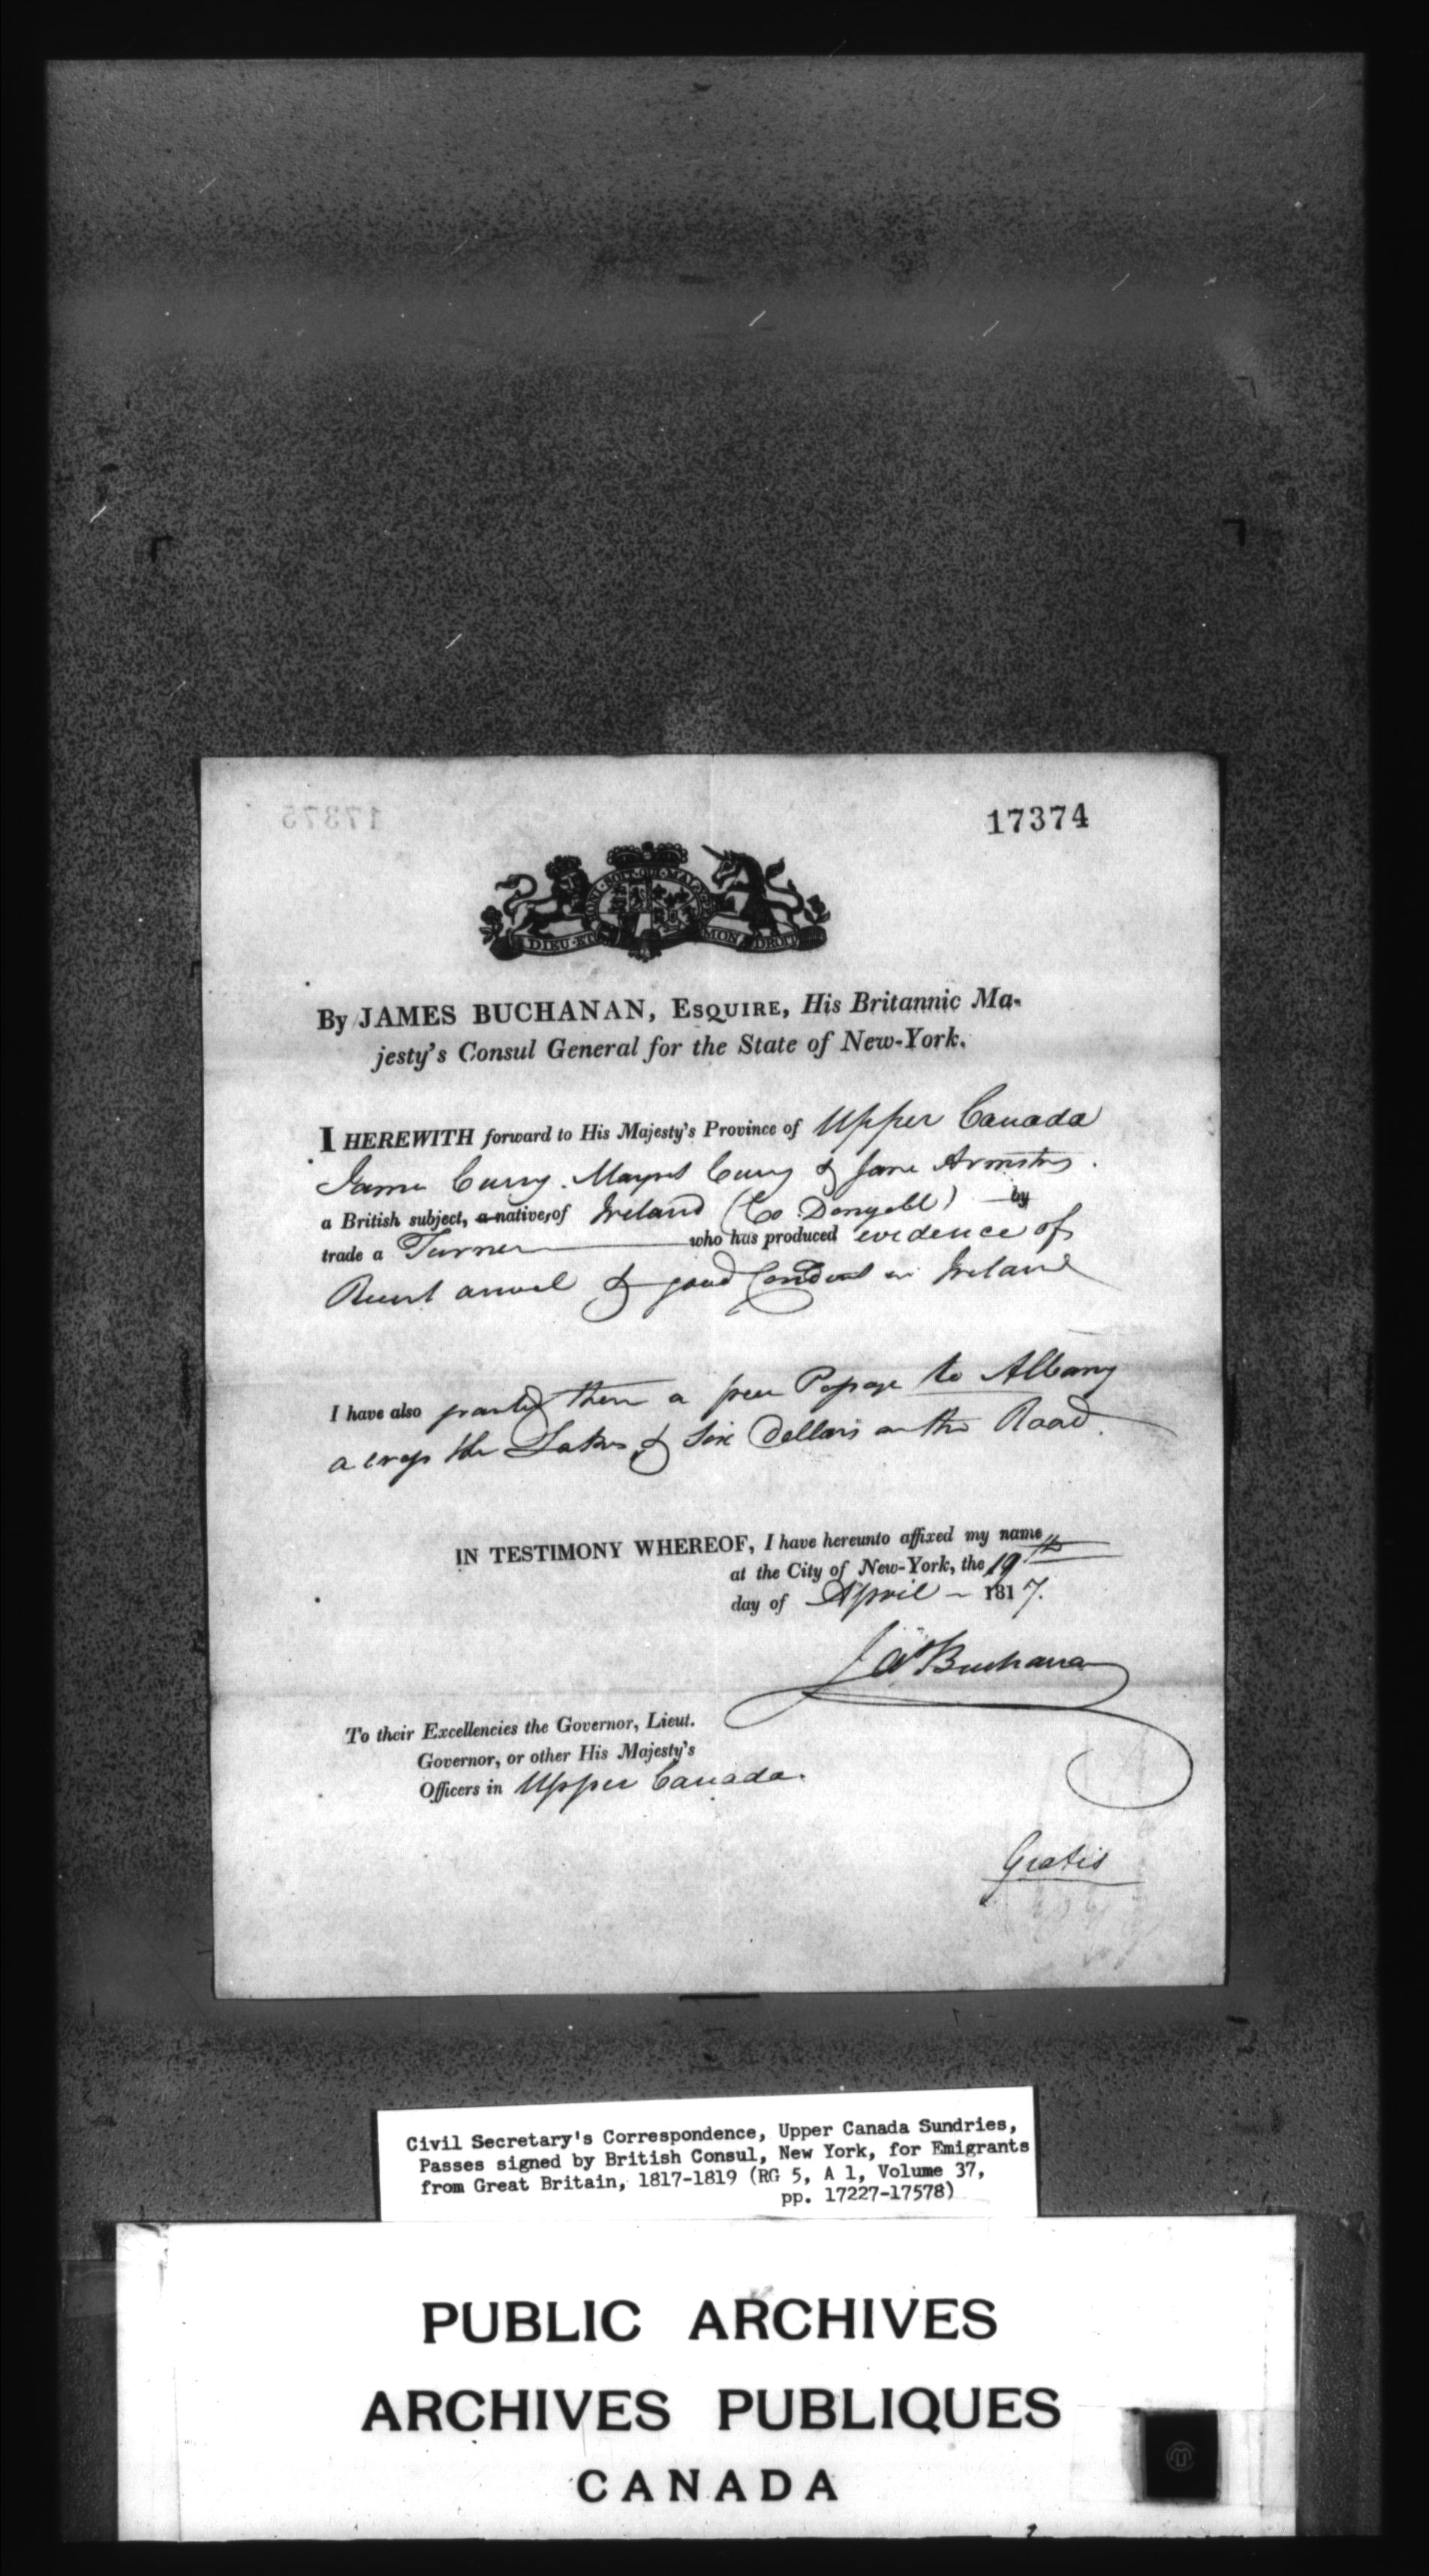 17375
17374
HONI·SOIT·QUI·MAL·Y
DIEU·ET MON DROIT
By JAMES BUCHANAN, ESQUIRE, His Britannic Ma-
jesty's Consul General for the State of New-York.
I HEREWITH forward to His Majesty's Province of Upper Canada
James Curry. Margret Curry & Jane Armstrong.
a British subject, a natives of Ireland (Co Donegall) — by
trade a Turner who has produced evidence of
Recent arrival & good Conduct in Ireland
I have also granted them a free Passage to Albany
across the Lakes & Six Dollars on the Road.
IN TESTIMONY WHEREOF, I have hereunto affixed my name
at the City of New-York, the 19th
day of April — 1817.
Jas Buchanan
To their Excellencies the Governor, Lieut.
Governor, or other His Majesty's
Officers in Upper Canada.
Gratis
Civil Secretary's Correspondence, Upper Canada Sundries,
Passes signed by British Consul, New York, for Emigrants
from Great Britain, 1817-1819 (RG 5, A 1, Volume 37,
pp. 17227-17578)
PUBLIC ARCHIVES
ARCHIVES PUBLIQUES
CANADA